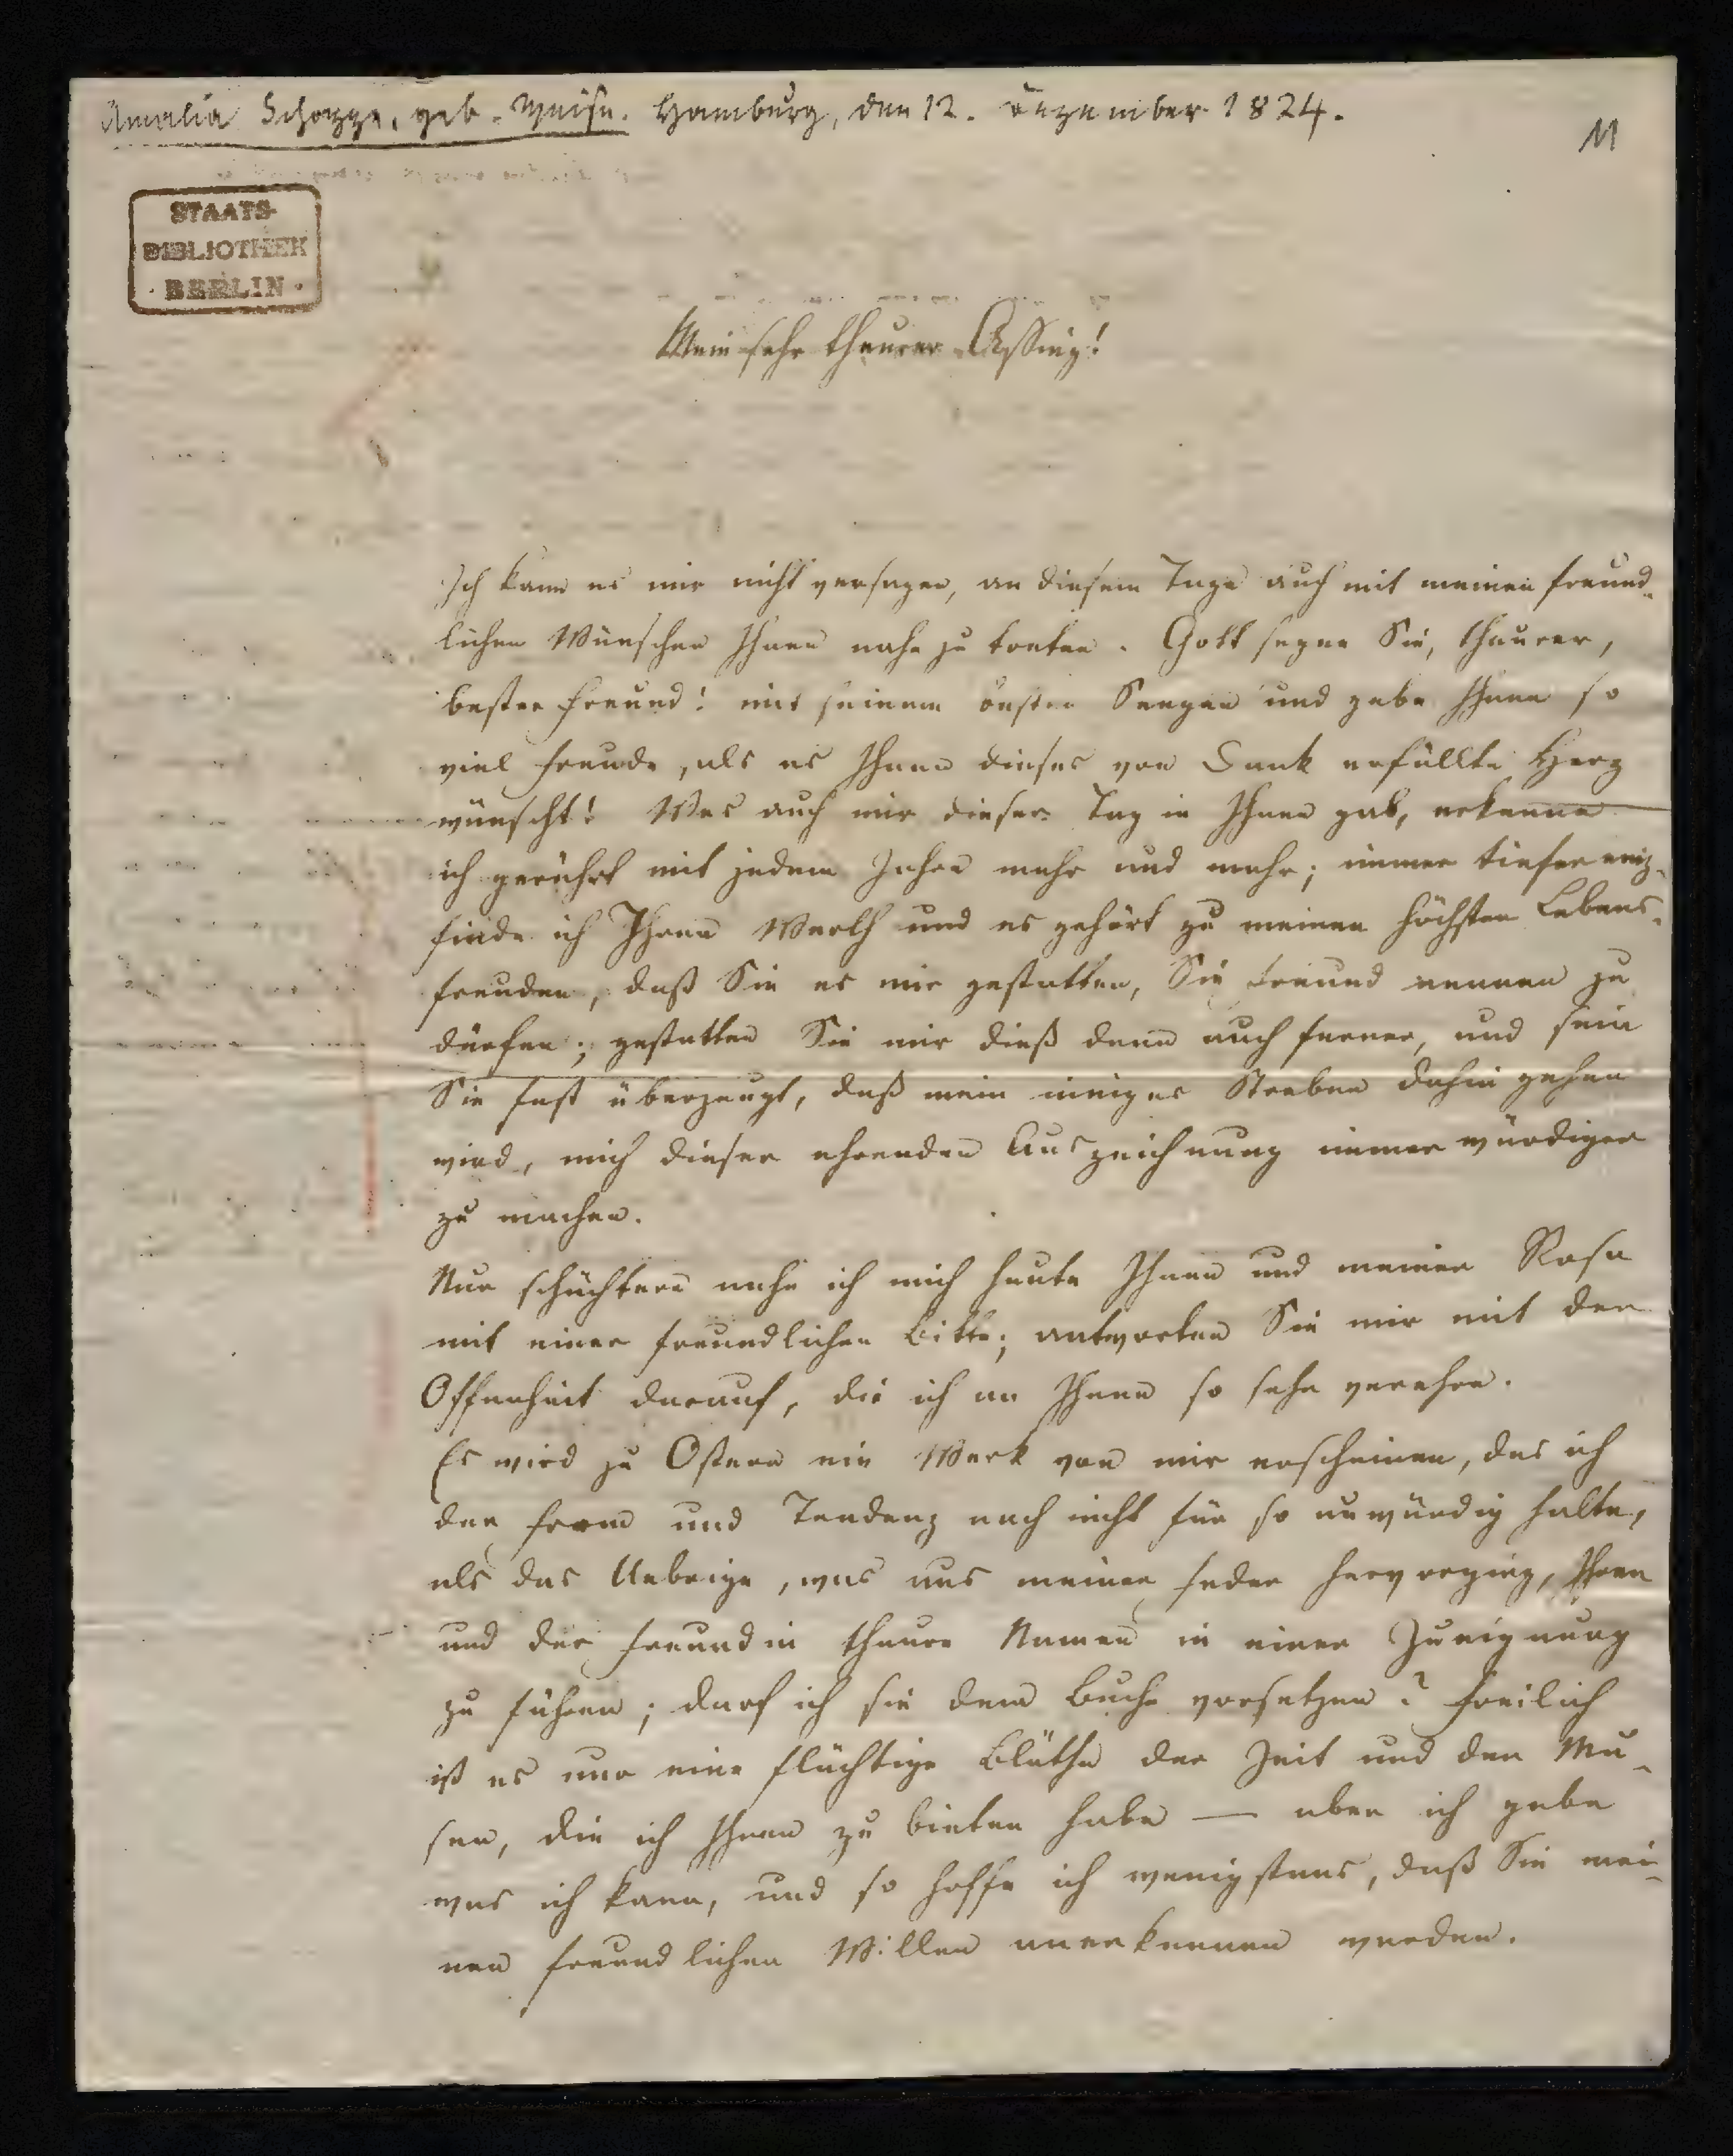 Amalia Schoppe, geb. Weise. Hamburg, den 12. Dezember 1824.
11
STAATS-
BIBLIOTHEK
· BERLIN ·
Mein sehr theurer Assing!
Ich kann es mir nicht versagen, an diesem Tage auch mit meinen freund-
lichen Wünschen Ihnen nahe zu treten. Gott segne Sie, theurer,
bester Freund! mit seinem Seegen und gebe Ihnen so
viel Freude, als es Ihnen dieses von Dank erfüllte Herz
wünscht! Was auch mir dieser Tag in Ihnen gab, erkenne
ich gerührt mit jedem Jahre mehr und mehr; immer tiefer emp-
finde ich Ihren Werth und es gehört zu meinen höchsten Lebens-
freuden, daß Sie es mir gestatten, Sie Freund nennen zu
dürfen; gestatten Sie mir dieß denn auch ferner, und sein
Sie fest überzeugt, daß mein inniges Streben dahin gehen
wird, mich dieser ehrenden Auszeichnung immer würdiger
zu machen.
Nur schüchtern nahe ich mich heute Ihnen und meiner Rosa
mit einer freundlichen Bitte; antworten Sie mir mit der
Offenheit darauf, die ich an Ihnen so sehr verehre.
Es wird zu Ostern ein Werk von mir erscheinen, das ich
der Form und Tendenz nach nicht für so unwürdig halte,
als das Uebrige, was aus meiner Feder hervorging, Ihren
und der Freundin theure Namen in einer Zueignung
zu führen; darf ich sie dem Buche vorsetzen? Freilich
ist es nur eine flüchtige Blüthe der Zeit und der Mu-
sen, die ich Ihnen zu bieten habe — aber ich gebe
was ich kann, und so hoffe ich wenigstens, daß Sie mei-
nen freundlichen Willen anerkennen werden.